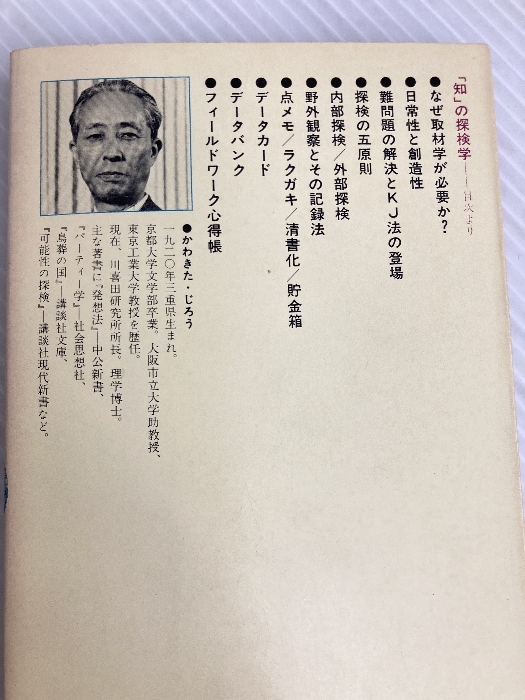 「知」の探検学──目次より
●なぜ取材学が必要か?
●日常性と創造性
●難問題の解決とKJ法の登場
●探検の五原則
●内部探検/外部探検
●野外観察とその記録法
●点メモ/ラクガキ/清書化/貯金箱
●データカード
●データバンク
●フィールドワーク心得帳
●かわきた・じろう
一九二〇年三重県生まれ。
京都大学文学部卒業。大阪市立大学助教授、
東京工業大学教授を歴任。
現在、川喜田研究所所長。理学博士。
主な著書に『発想法』─中公新書、
『パーティー学』─社会思想社、
『鳥葬の国』─講談社文庫、
『可能性の探検』─講談社現代新書など。